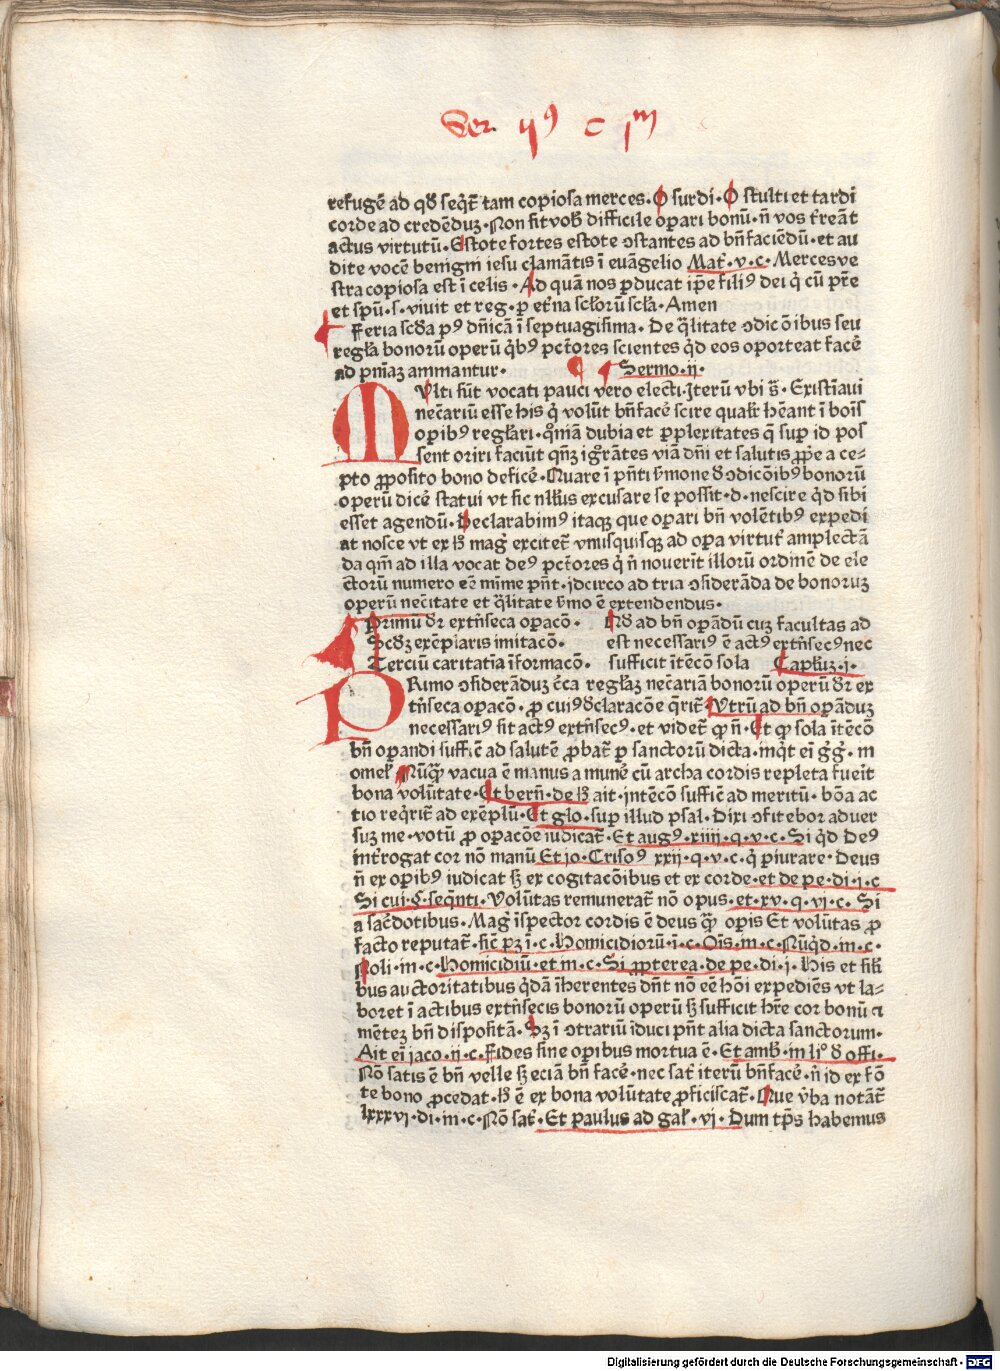 Ser. ijꝰ c jᵐ
refugē ad qð seqͥt̃ tam copiosa merces. O surdi. O stulti et tardi
corde ad credēduz. Non sit vob̃ difficile oꝑari bonū. ñ vos t̃reāt
actus virtutū. Estote fortes estote ↄstantes ad bñfaciēdū. et au
dite vocē benigni iesu clamātis ī euāgelio Mat̃. v. c. Merces ve
stra copiosa est ī celis. Ad quā nos ꝑducat ip̄e filiꝰ dei q̇ cū pr̄e
et spū. s. viuit et reg. ꝑ et̃na sc̄loꝝ scl̄a. Amen
Feria scďa pꝰ dñicā ī septuagesima. De q̄litate ↄdicōibus seu
regl̃a bonorū operū qͥbꝰ pctōres scientes qͥd eos oporteat facē
ad pn̄iaꝫ ammantur. Sermo. ij.
MUlti sūt vocati pauci vero electi. Jterū vbi s̃. Existīaui
necc̄ariū esse his q̇ volūt bñfacē scire qualr̃ hēant ī bōis
oꝑibꝰ regl̃ari. qm̄ā dubia et ꝑplexitates q̄ suꝑ id pos
sent oriri faciūt qñꝫ ig̃rātes viā dñi et salutis ꝓpe a ce-
pto ꝓposito bono deficē. Quare ī pn̄ti ẜmone ď ↄdicōibꝰ bonorū
operū dicē statui vt sic nllus excusare se possit. d. nescire qͥd sibi
esset agendū. Declarabimꝰ itaqꝫ que oꝑari bñ volētibꝰ expedi
at nosce vt ex hͦ mag̃ excitet̃ vnusquisqꝫ ad oꝑa virtut̃ amplectā
da qm̄ ad illa vocat deꝰ pctōres q̇ ñ nouerit illorū ordinē de ele
ctorū numero eē mīme pn̄t. jdcirco ad tria ↄsiderāda de bonoruꝫ
operū necc̄itate et q̄litate ẜmo ē extendendus.
Primū dr̄ extn̄seca oꝑacō.
Scďꝫ exēplaris imitacō.
Terciū caritatīa īformacō.
Nō ad bñ oꝑādū cuꝫ facultas ad
est necessariꝰ ē actꝰ extn̄secꝰ nec
sufficit ītēcō sola Capl̃uꝫ. j.
PRimo ↄsiderāduꝫ c̃ca regl̃aꝫ necc̄ariā bonorū operū dr̄ ex
tn̄seca oꝑacō. ꝓ cuiꝰ ďclaracōe q̄rit̃. Vtrū ad bñ oꝑāduꝫ
necessariꝰ sit actꝰ extn̄secꝰ. et videt̃ ꝙ ñ. Et ꝙ sola ītēcō
bñ oꝑandi suffic̄ ad salutē ꝓbat̃ ꝑ sanctorū dicta. inqͥt eī g̃g̃. in
omel̃. Nūqͣꝫ vacua ē manus a munē cū archa cordis repleta fueīt
bona volūtate. Et berñ. de hͦ ait. intēcō suffic̄ ad meritū. bōa ac
tio reqͥrit̃ ad exēplū. Et glo. suꝑ illud psal. Dixi ↄfitebor aduer
suꝫ me. votū ꝓ oꝑacōe iudicat̃. Et augꝰ. xiiij. q. v. c. Si qͥd deꝰ
int̃rogat cor nō manū Et jo. Crisoꝰ xxij. q. v. c. q̇ ꝑiurare. Deus
ñ ex oꝑibꝰ iudicat sꝫ ex cogitacōibus et ex corde. et de pe. di. j. c
Si cui. §. seqn̄ti. Volūtas remunerat̃ nō opus. et. xv. q. vj. c. Si
a sac̃dotibus. Mag̃ īspector cordis ē deus qͣꝫ oꝑis Et volūtas ꝓ
facto reputat̃. sic̄ pꝫ ī. c. Homicidiorū. j. c. Oīs. m. c. Nūqͥd. m. c.
Noli. in. c. Homicidiū. et m. c. Si ꝓpterea. de pe. di. j. His et sil̃i
bus auctoritatibus qͥdā īherentes dn̄t nō eē hōi expediēs vt la-
boret ī actibus extn̄secis bonorū operū sꝫ sufficit hr̄e cor bonū ⁊
mēteꝫ bñ dispositā. Sꝫ ī ↄtrariū īduci pn̄t alia dicta sanctorum.
Ait eī jaco. ij. c. Fides sine oꝑibus mortua ē. Et amb̃. in li° ď offi.
Nō satis ē bñ velle sꝫ eciā bñ facē. nec sat̃ iterū bñfacē. ñ id ex fō
te bono ꝓcedat. hͦ ē ex bona volūtate ꝓficiscat̃. Que v̄ba notāt̃
lxxxvj. di. m. c. Nō sat̃. Et paulus ad gal̃. vj. Dum tꝑs habemus
Digitalisierung gefördert durch die Deutsche Forschungsgemeinschaft - DFG